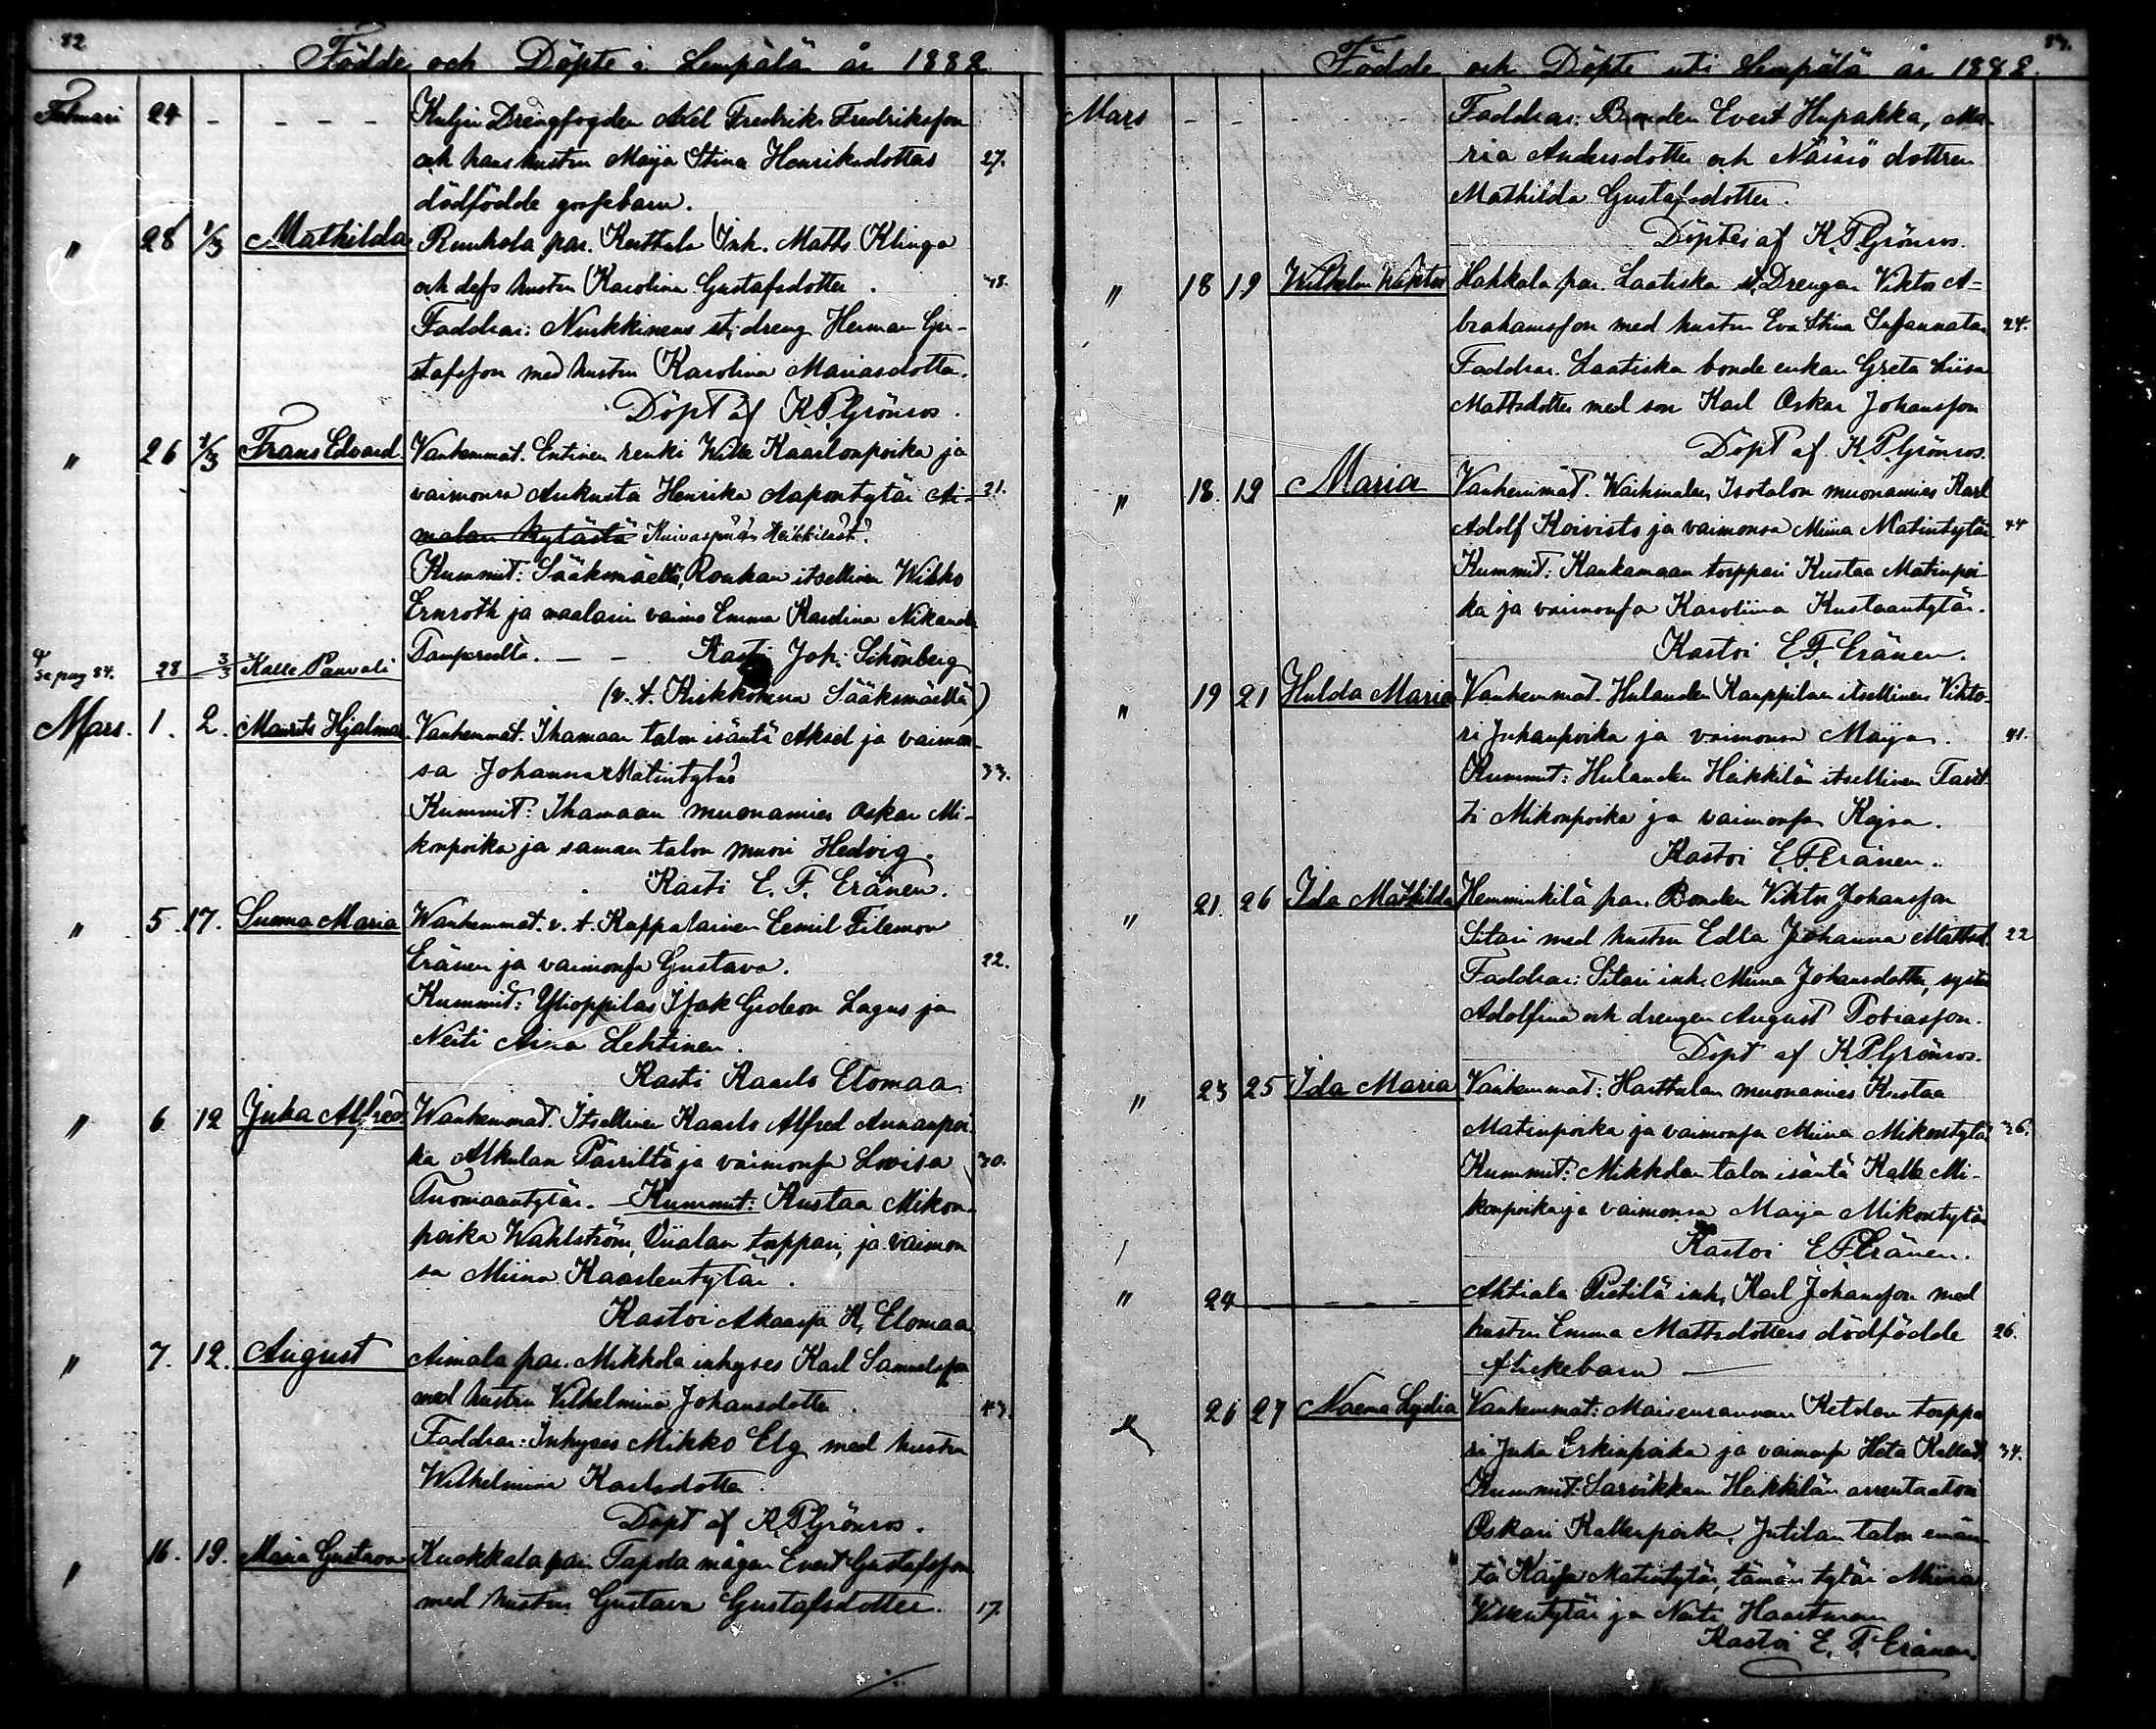 82
Födde och Döpte i Lempälä år 1882
Februari 24 - - - - - Kuljun Drengfogden Axel Fredrik Fredriksson
och hans hustru Maija Stina Henriksdotters 27.
dödfödde gossebarn.
" 28 1/3 Mathilda Kuthala Inh. Matts Klinga
och dess hustru Karolina Gustafsdotter. 48.
Faddrar: Nurkkinens st. dreng Herman Gu-
stafsson med hustru Karolina Mariasdotter.
Döpt af K. P. Grönroos.
" 26 1/3 Frans Edvard. Vanhemmat. Entinen renki Wille Kaarlonpoika ja
vaimonsa Aukusta Henrika Aapontytär Ai- 21.
malan kylästä Kuivaspään Heikkiläst.
Kummit: Sääksmäeltä, Roukon itsellinen Wikko
Ernroth ja maalarin vaimo Emma Karolina Nikander
Tampereelta. — — Kasti Joh. Schönberg
se pag 84. 28 3/3 Kalle Paavali
(v. t. Kirkkoherra Sääksmäellä)
Mars. 1. 2. Maurits Hjalmar Vanhemmat. Ihamaan talon isäntä Aksel ja vaimon-
sa Johanna Matintytär 33.
Kummit: Ihamaan muonamies Oskar Mi-
konpoika ja saman talon muori Hedvig.
Kasti E. F. Eränen.
" 5. 17. Suoma Maria Wanhemmat. v. t. Kappalainen Eemil Filemon
Eränen ja vaimonsa Gustava. 22.
Kummit: Ylioppilas Isak Gideon Lagus ja
Neiti Aina Lehtinen.
Kasti Kaarlo Elomaa
" 6 12 Juha Alfred Wanhemmat. Itsellinen Kaarlo Alfred Annanpoi-
ka Alkulan Päiviltä ja vaimonsa Lovisa 30.
Tuomaantytär. — Kummit: Kustaa Mikon-
poika Wahlström, Viialan torppari, ja vaimon
sa Miina Kaarlentytär.
Kastoi Akaassa K. Elomaa
" 7. 12. August Aimala par. Mikkola inhyses Karl Samuelsson
med hustru Vilhelmina Johansdotter. 43.
Faddrar: Inhyses Mikko Elg med hustru
Wilhelmina Karlsdotter.
Döpt af K. P. Grönroos.
" 16. 19. Maria Gustava Kuokkala par. Tapola mågen Evert Gustafsson
med hustru Gustava Gustafsdotter. 17.
83.
Födde och Döpte uti Lempälä år 1882.
Mars - - - - - Faddrar: Bonden Evert Hupakka, Ma-
ria Andersdotter och Nässiö dottren
Mathilda Gustafsdotter.
Döptes af K. P. Grönroos.
" 18 19 Wilhelm Wiktor Hakkala par. Laatiska st. Drengen Viktor A-
brahamsson med hustru Eva Stina Susannatar 24.
Faddrar. Laatiska bonde enkan Greta Liisa
Mattsdotter med son Karl Oskar Johansson
Döpt af K. P. Grönroos.
" 18. 19 Maria Vanhemmat. Isotalon muonamies Karl
Adolf Koivisto ja vaimonsa Miina Matintytär. 44
Kummit: Kankamaan torppari Kustaa Matinpoi-
ka ja vaimonsa Karoliina Kustaantytär.
Kastoi E. F. Eränen.
" 19 21 Hulda Maria Vanhemmat. Hulauden Kauppilan itsellinen Vikto-
ri Juhanpoika ja vaimonsa Maija. 41.
Kummit: Hulauden Heikkilän itsellinen Tavet-
ti Mikonpoika ja vaimonsa Kajsa.
Kastoi E. F. Eränen.
" 21. 26 Ida Mathilda Hemminkilä par. Bonden Viktor Johansson
Sitari med hustru Edla Johanna Mattsd. 22
Faddrar: Sitari inh. Miina Johansdotter, syster
Adolfina och drengen August Tobiasson.
Döpt af K. P. Grönroos.
" 23 25 Ida Maria Vanhemmat: Harttulan muonamies Kustaa
Matinpoika ja vaimonsa Miina Mikontytär 36.
Kummit: Mikkolan talon isäntä Kalle Mi-
konpoika ja vaimonsa Maija Mikontytär
Kastoi E. F. Eränen.
" 24 - - - - Ahtiala Pietilä inh. Karl Johansson med
hustru Emma Mattsdotters dödfödde 26.
flickebarn —
26 27 Naema Lydia Vanhemmat: Maisenrannan Ketolan torppa
ri Juha Erkinpoika ja vaimonsa Heta Kallent. 34.
Kummit: Sarvikkan Heikkilän arrentaatori
Oskari Kallenpoika, Jutilan talon emän-
tä Kaisa Matintytär, tämän tytär Miina
Villentytär ja Neiti Haartman
Kastoi E. F. Eränen.